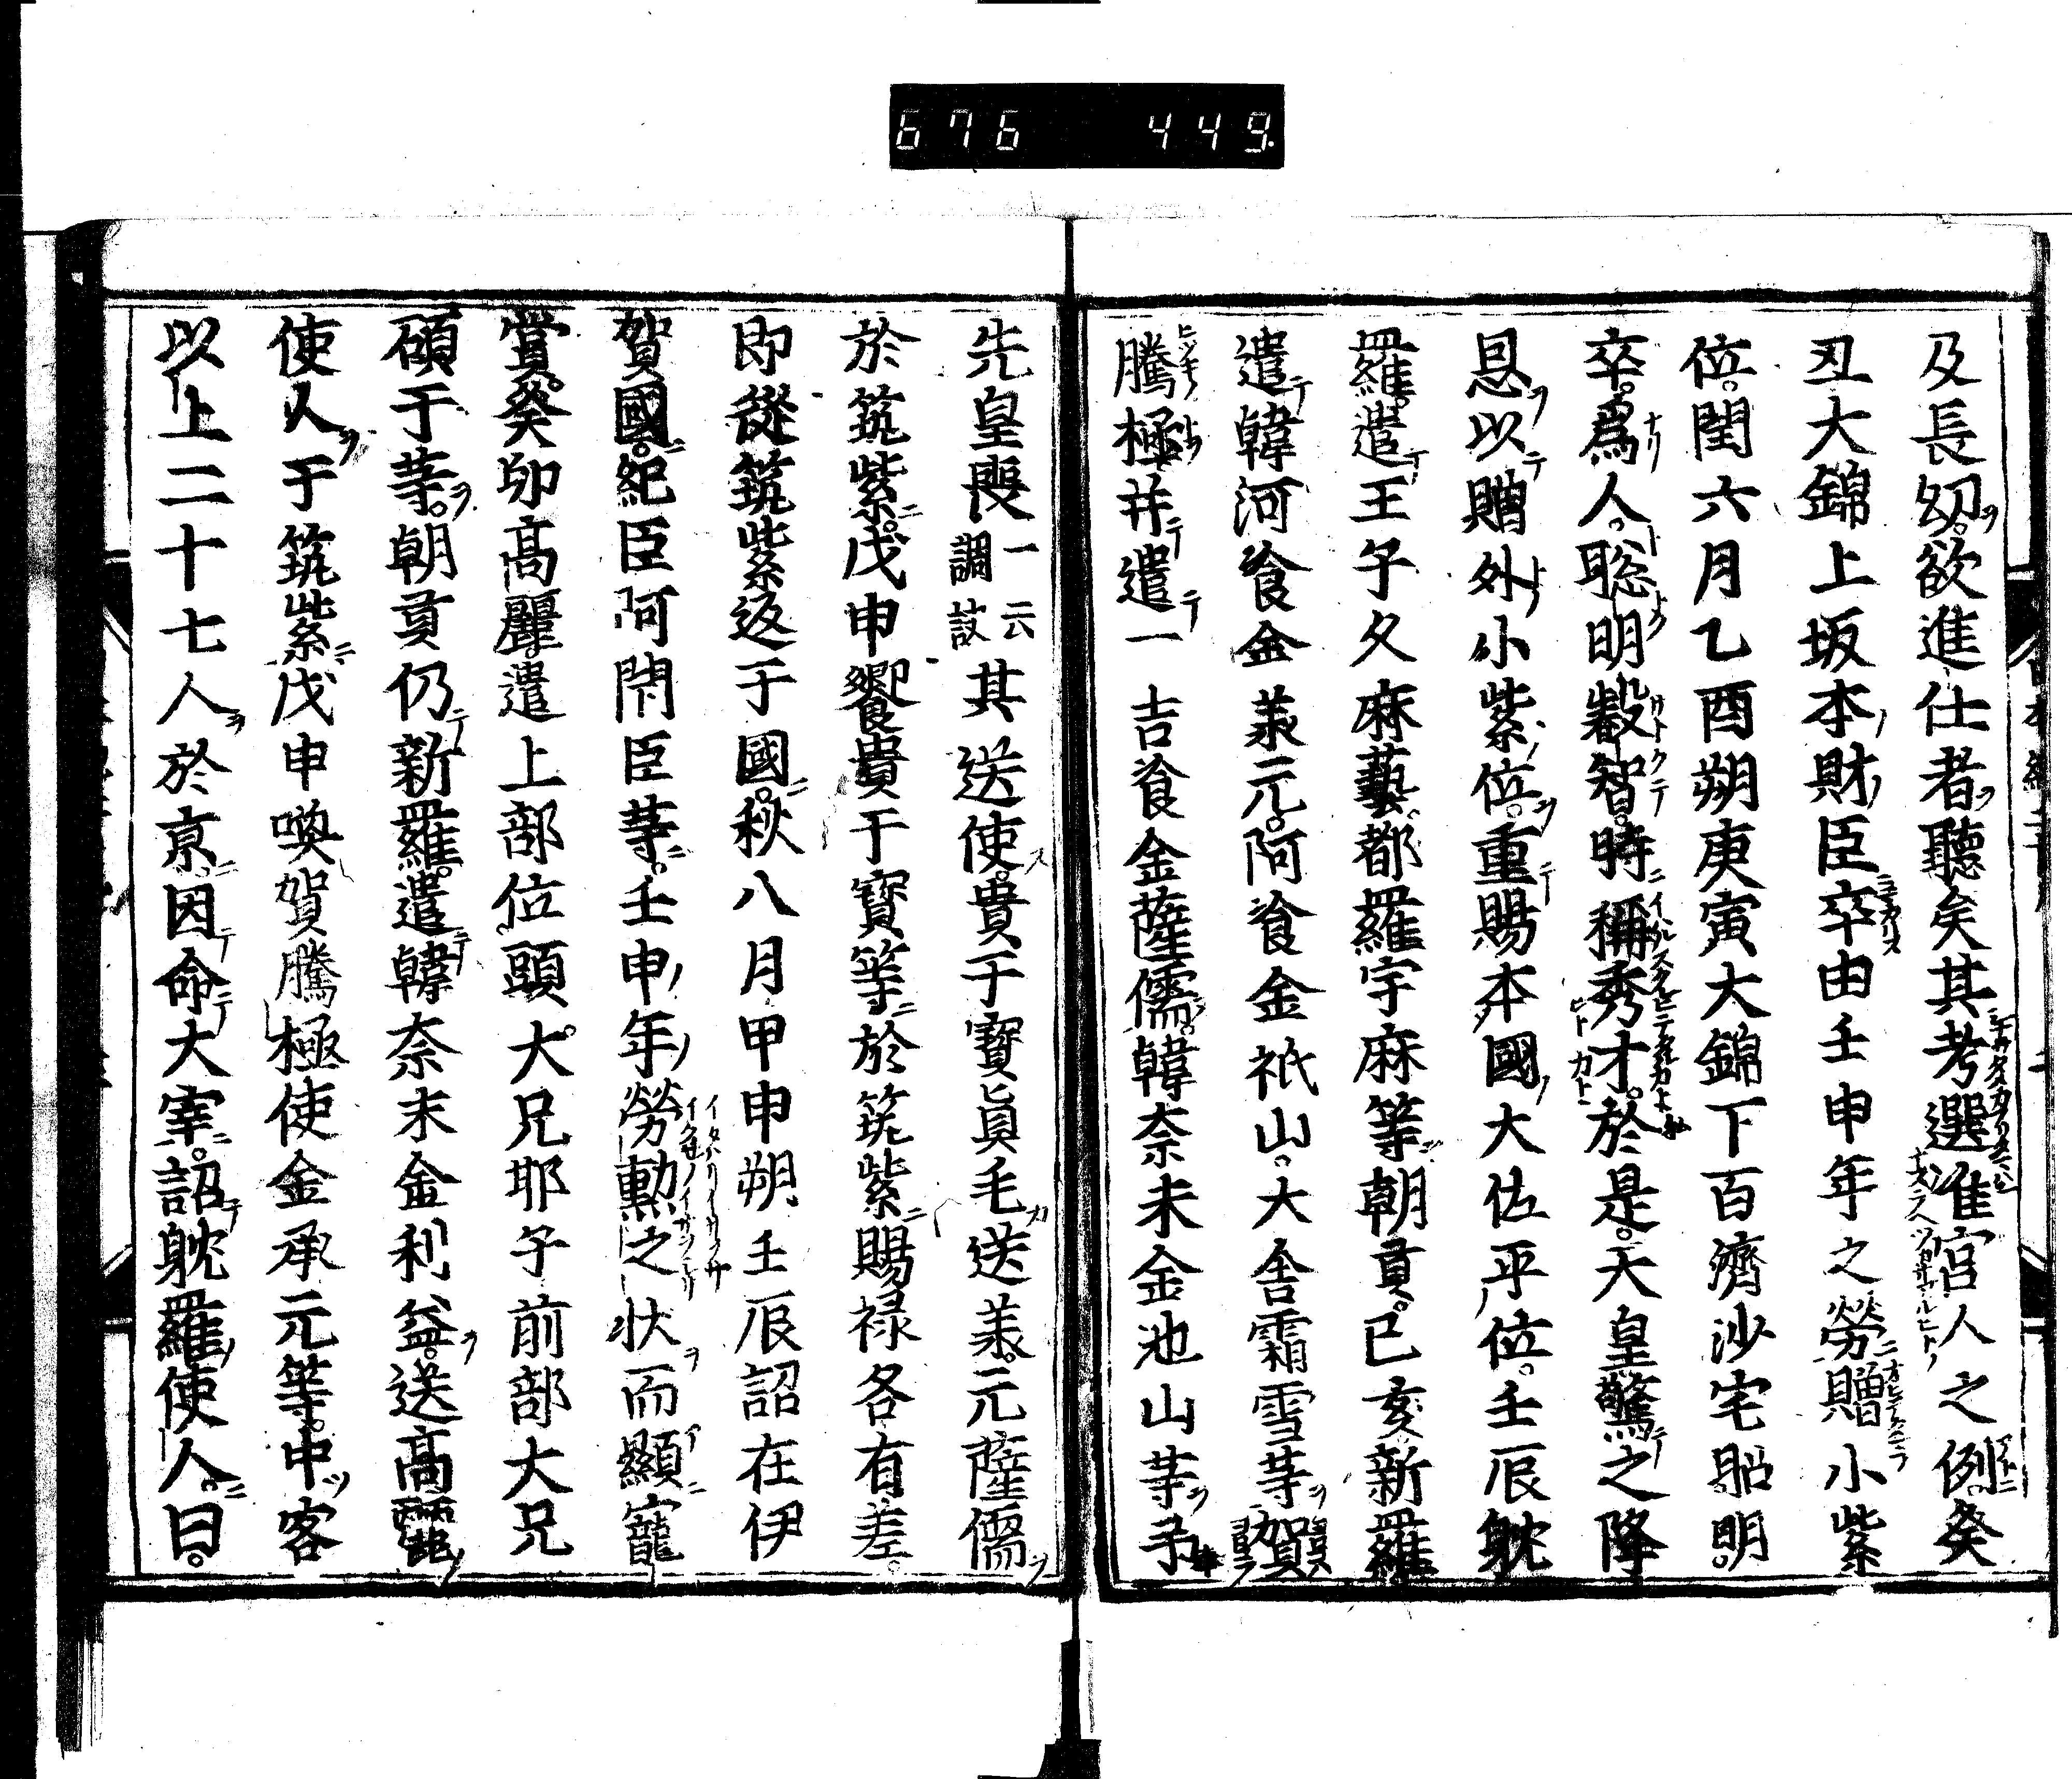 676 449
及長幼欲進仕者聽矣其考選准官人之例癸
丑大錦上坂本財臣卒由壬申年之勞贈小紫
位閏六月乙酉朔庚寅大錦下百濟沙宅昭明
卒爲人聡明叡智時稱秀才於是天皇驚之降
恩以贈外小紫位重賜本國大佐平位壬辰躭
羅遣王子久麻藝都羅宇麻等朝貢己亥新羅
遣韓阿飡金羕元阿飡金祇山大舎霜雪等賀
騰極并遣一吉飡金薩儒韓奈末金池山等弔
先皇喪一云調使其送使貴于寳眞毛送羕元薩儒
於筑紫戊申饗貴于寳等於筑紫賜禄各有差
即從筑紫返于國秋八月甲申朔壬辰詔在伊
賀國紀臣阿閇臣等壬申年勞勲之状而顯寵
賞癸卯高麗遣上部位頭大兄耶子前部大兄
碩于等朝貢仍新羅遣韓奈末金利益送高麗
使人于筑紫戊申喚賀騰極使金承元等中客
以上二十七人於京因命大宰詔躭羅使人曰